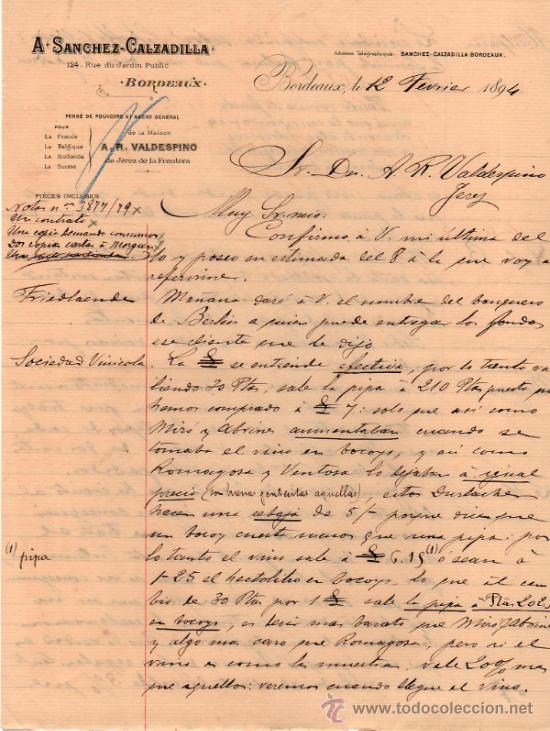 A. SANCHEZ-CALZADILLA
124, Rue du Jardin Public
BORDEAUX
Adresse Télégraphique: SANCHEZ-CALZADILLA-BORDEAUX.
Bordeaux, le 12 Fevrier 1894
FONDÉ DE POUVOIRS ET AGENT GÉNÉRAL
POUR
La France
La Belgique
La Hollande
La Suisse
de la Maison
A. R. VALDESPINO
de Jérez de la Frontera
Sr. Dn. A. R. Valdespino
Jerez
PIÈCES INCLUSES
Notas nos 3877/79
Un contrato
Una copia demanda consumos
Dos copias cartas à Morgan
Muy Sr. mio:
Confirmo à V. mi última del
10 y poseo su estimada del 8 à la que voy a
referirme.
Friedlaender
Mañana daré à V. el nombre del banquero
de Berlin a quien puede entregar los fondos
ese cliente que le dijo
Sociedad Vinicola
La £ se entiende efectiva, por lo tanto va
liendo 30 Ptas: sale la pipa à 210 Ptas puesto que
hemos comprado à £ 7: solo que asi como
Miró y Abrines aumentaban cuando se
tomaba el vino en bocoys, y asi como
Romagosa y Ventosa lo dejaban à igual
precio (son buenas gentecitas aquellas), estos
hacen una rebaja de 5/- porque dicen que
un bocoy cuesta menos que una pipa: por
lo tanto el vino sale à £ 6.15 (1) ó sean à
1-25 el hectolitro en bocoys, lo que al cam
bio de 30 Ptas por 1 £ sale la pipa à Ptas 202.50
en bocoys, es decir mas barato que Miró Abrines
y algo mas caro que Romagosa, pero si el
vino es como la muestra, vale 20% mas
que aquellos: veremos cuando llegue el vino.
(1) pipa
todocoleccion.net